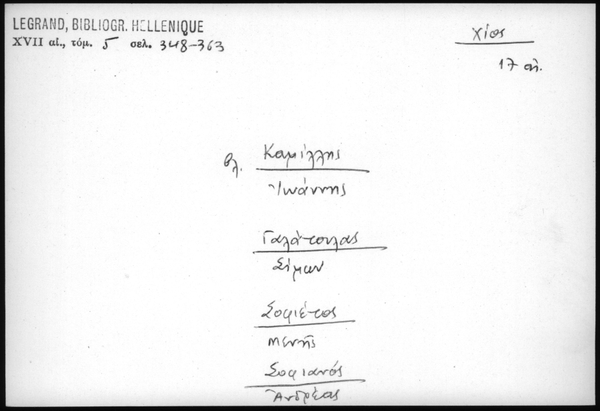 LEGRAND, BIBLIOGR. HELLENIQUE
XVII αἰ., τόμ. 5 σελ. 348-363
Χίος
17 αἰ.
βλ. Καμίλλης
Ἰωάννης
Γαλάτουλας
Σίμων
Σοφιέτος
Μενής
Σοφιανός
Ἀνδρέας